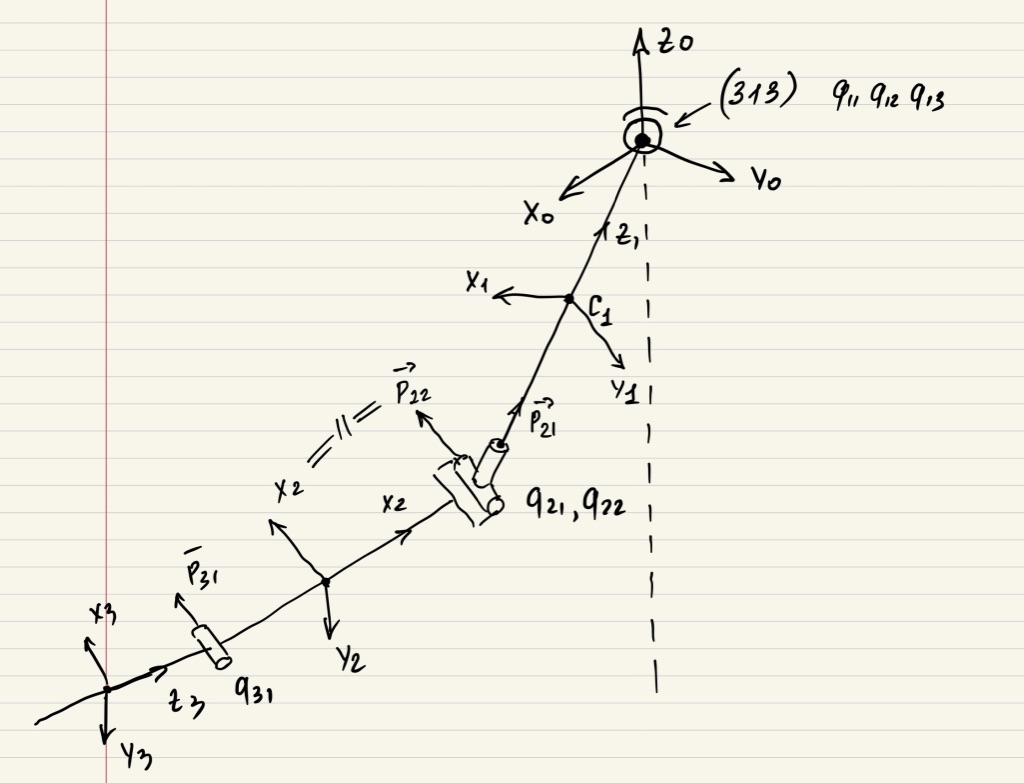 Z0
(313) q11 q12 q13
X0
Y0
Z1
X1
C1
Y1
P22
P21
X2
X2
q21, q22
P31
X3
Y2
Z3
q31
Y3